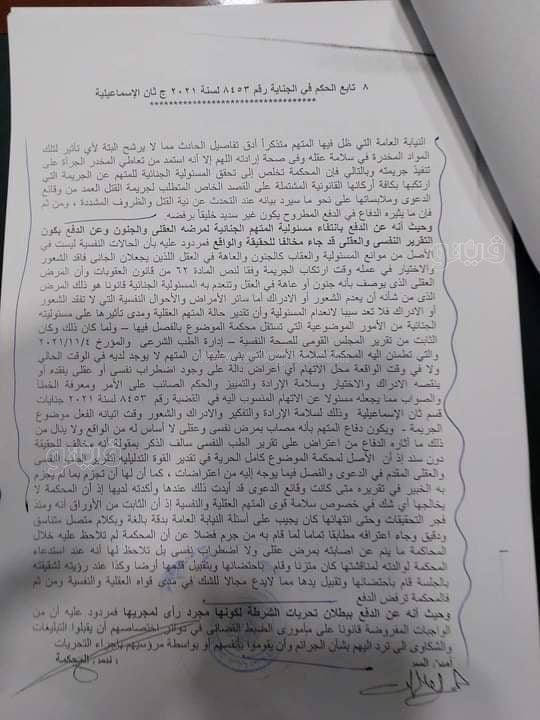 ٨ تابع الحكم في الجناية رقم ٨٤٥٣ لسنة ٢٠٢١ ج ثان الإسماعيلية
********************************
النيابة العامة التي ظل فيها المتهم متذكراً أدق تفاصيل الحادث مما لا يرشح البتة لأي تأثير لتلك
المواد المخدرة في سلامة عقله وفى صحة إرادته اللهم إلا أنه استمد من تعاطي المخدر الجرأة على
تنفيذ جريمته وبالتالي فإن المحكمة تخلص إلى تحقق المسئولية الجنائية للمتهم عن الجريمة التي
ارتكبها بكافة أركانها القانونية المشتملة على القصد الخاص المتطلب لجريمة القتل العمد من وقائع
الدعوى وملابساتها على نحو ما سيرد بيانه عند التحدث عن نية القتل والظروف المشددة , ومن ثم
فإن ما يثيره الدفاع في الدفع المطروح يكون غير سديد خليقاً برفضه.
وحيث أنه عن الدفع بانتفاء مسئولية المتهم الجنائية لمرضه العقلي والجنون وعن الدفع بكون
التقرير النفسى والعقلى قد جاء مخالفا للحقيقة والواقع فمردود عليه بأن الحالات النفسية ليست في
الأصل من موانع المسئولية والعقاب كالجنون والعاهة في العقل اللذين يجعلان الجاني فاقد الشعور
والاختيار في عمله وقت ارتكاب الجريمة وفقا لنص المادة ٦٢ من قانون العقوبات وأن المرض
العقلى الذى يوصف بأنه جنون أو عاهة في العقل وتنعدم به المسئولية الجنائية قانونا هو ذلك المرض
الذى من شأنه أن يعدم الشعور أو الادراك أما سائر الأمراض والأحوال النفسية التي لا تفقد الشعور
أو الادراك فلا تعد سببا لانعدام المسئولية وأن تقدير حالة المتهم العقلية ومدى تأثيرها على مسئوليته
الجنائية من الأمور الموضوعية التي تستقل محكمة الموضوع بالفصل فيها – ولما كان ذلك وكان
الثابت من تقرير المجلس القومى للصحة النفسية – إدارة الطب الشرعى والمؤرخ ٢٠٢١/١١/٤
والتي تطمئن اليه المحكمة لسلامة الأسس التي بنى عليها أن المتهم لا يوجد لديه في الوقت الحالي
ولا في وقت الواقعة محل الاتهام أي اعراض دالة على وجود اضطراب نفسى أو عقلى يفقده أو
ينقصه الادراك والاختيار وسلامة الإرادة والتمييز والحكم الصائب على الأمر ومعرفة الخطأ
والصواب مما يجعله مسئولا عن الاتهام المنسوب اليه في القضية رقم ٨٤٥٣ لسنة ٢٠٢١ جنايات
قسم ثان الإسماعيلية وذلك لسلامة الإرادة والتفكير والادراك والشعور وقت اتيانه الفعل موضوع
الجريمة - ويكون دفاع المتهم بأنه مصاب بمرض نفسى وعقلى لا أساس له من الواقع ولا ينال من
ذلك ما أثاره الدفاع من اعتراض على تقرير الطب النفسى سالف الذكر بمقولة أنه مخالف للحقيقة
دون سند إذ أن الأصل لمحكمة الموضوع كامل الحرية في تقدير القوة التدليلية لتقرير الطب النفسى
والعقلى المقدم في الدعوى والفصل فيما يوجه اليه من اعتراضات , كما أن لها أن تجزم بما لم يجزم
به الخبير في تقريره متى كانت وقائع الدعوى قد أيدت ذلك عندها وأكدته لديها إذ أن المحكمة لا
يخالجها أي شك في خصوص سلامة قوى المتهم العقلية والنفسية إذ أن الثابت من الأوراق أنه ومنذ
فجر التحقيقات وحتى انتهائها كان يجيب على أسئلة النيابة العامة بدقة بالغة وبكلام متصل متناسق
ودقيق وجاء اعترافه مطابقا تماما لما قام به من جرم فضلا عن أن المحكمة لم تلاحظ عليه خلال
المحاكمة ما ينم عن اصابته بمرض عقلى ولا اضطراب نفسى بل تلاحظ لها أنه عند استدعاء
المحكمة لوالدته لمناقشتها كان متزنا وقام باحتضانها وبتقبيل قدمها أرضا وكذا عند رؤيته لشقيقته
بالجلسة قام باحتضانها وتقبيل يدها مما لايدع مجالا للشك في مدى قواه العقلية والنفسية ومن ثم
فالمحكمة ترفض الدفع
وحيث أنه عن الدفع ببطلان تحريات الشرطة لكونها مجرد رأى لمجريها فمردود عليه أن من
الواجبات المفروضة قانونا على مأموري الضبط القضائي في دوائر اختصاصهم أن يقبلوا التبليغات
والشكاوى التي ترد اليهم بشأن الجرائم وأن يقوموا بأنفسهم أو بواسطة مرؤسيهم بإجراء التحريات
أمين السر
رئيس المحكمة